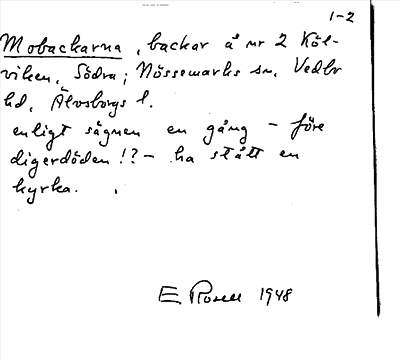 1-2
Mobackarna, backar å nr 2 Köl-
viken, Södra; Nössemarks sn, Vedbo
hd, Älvsborgs l.
enligt sägnen en gång - före
digerdöden!? - ha stått en
kyrka.
E Rosell 1948